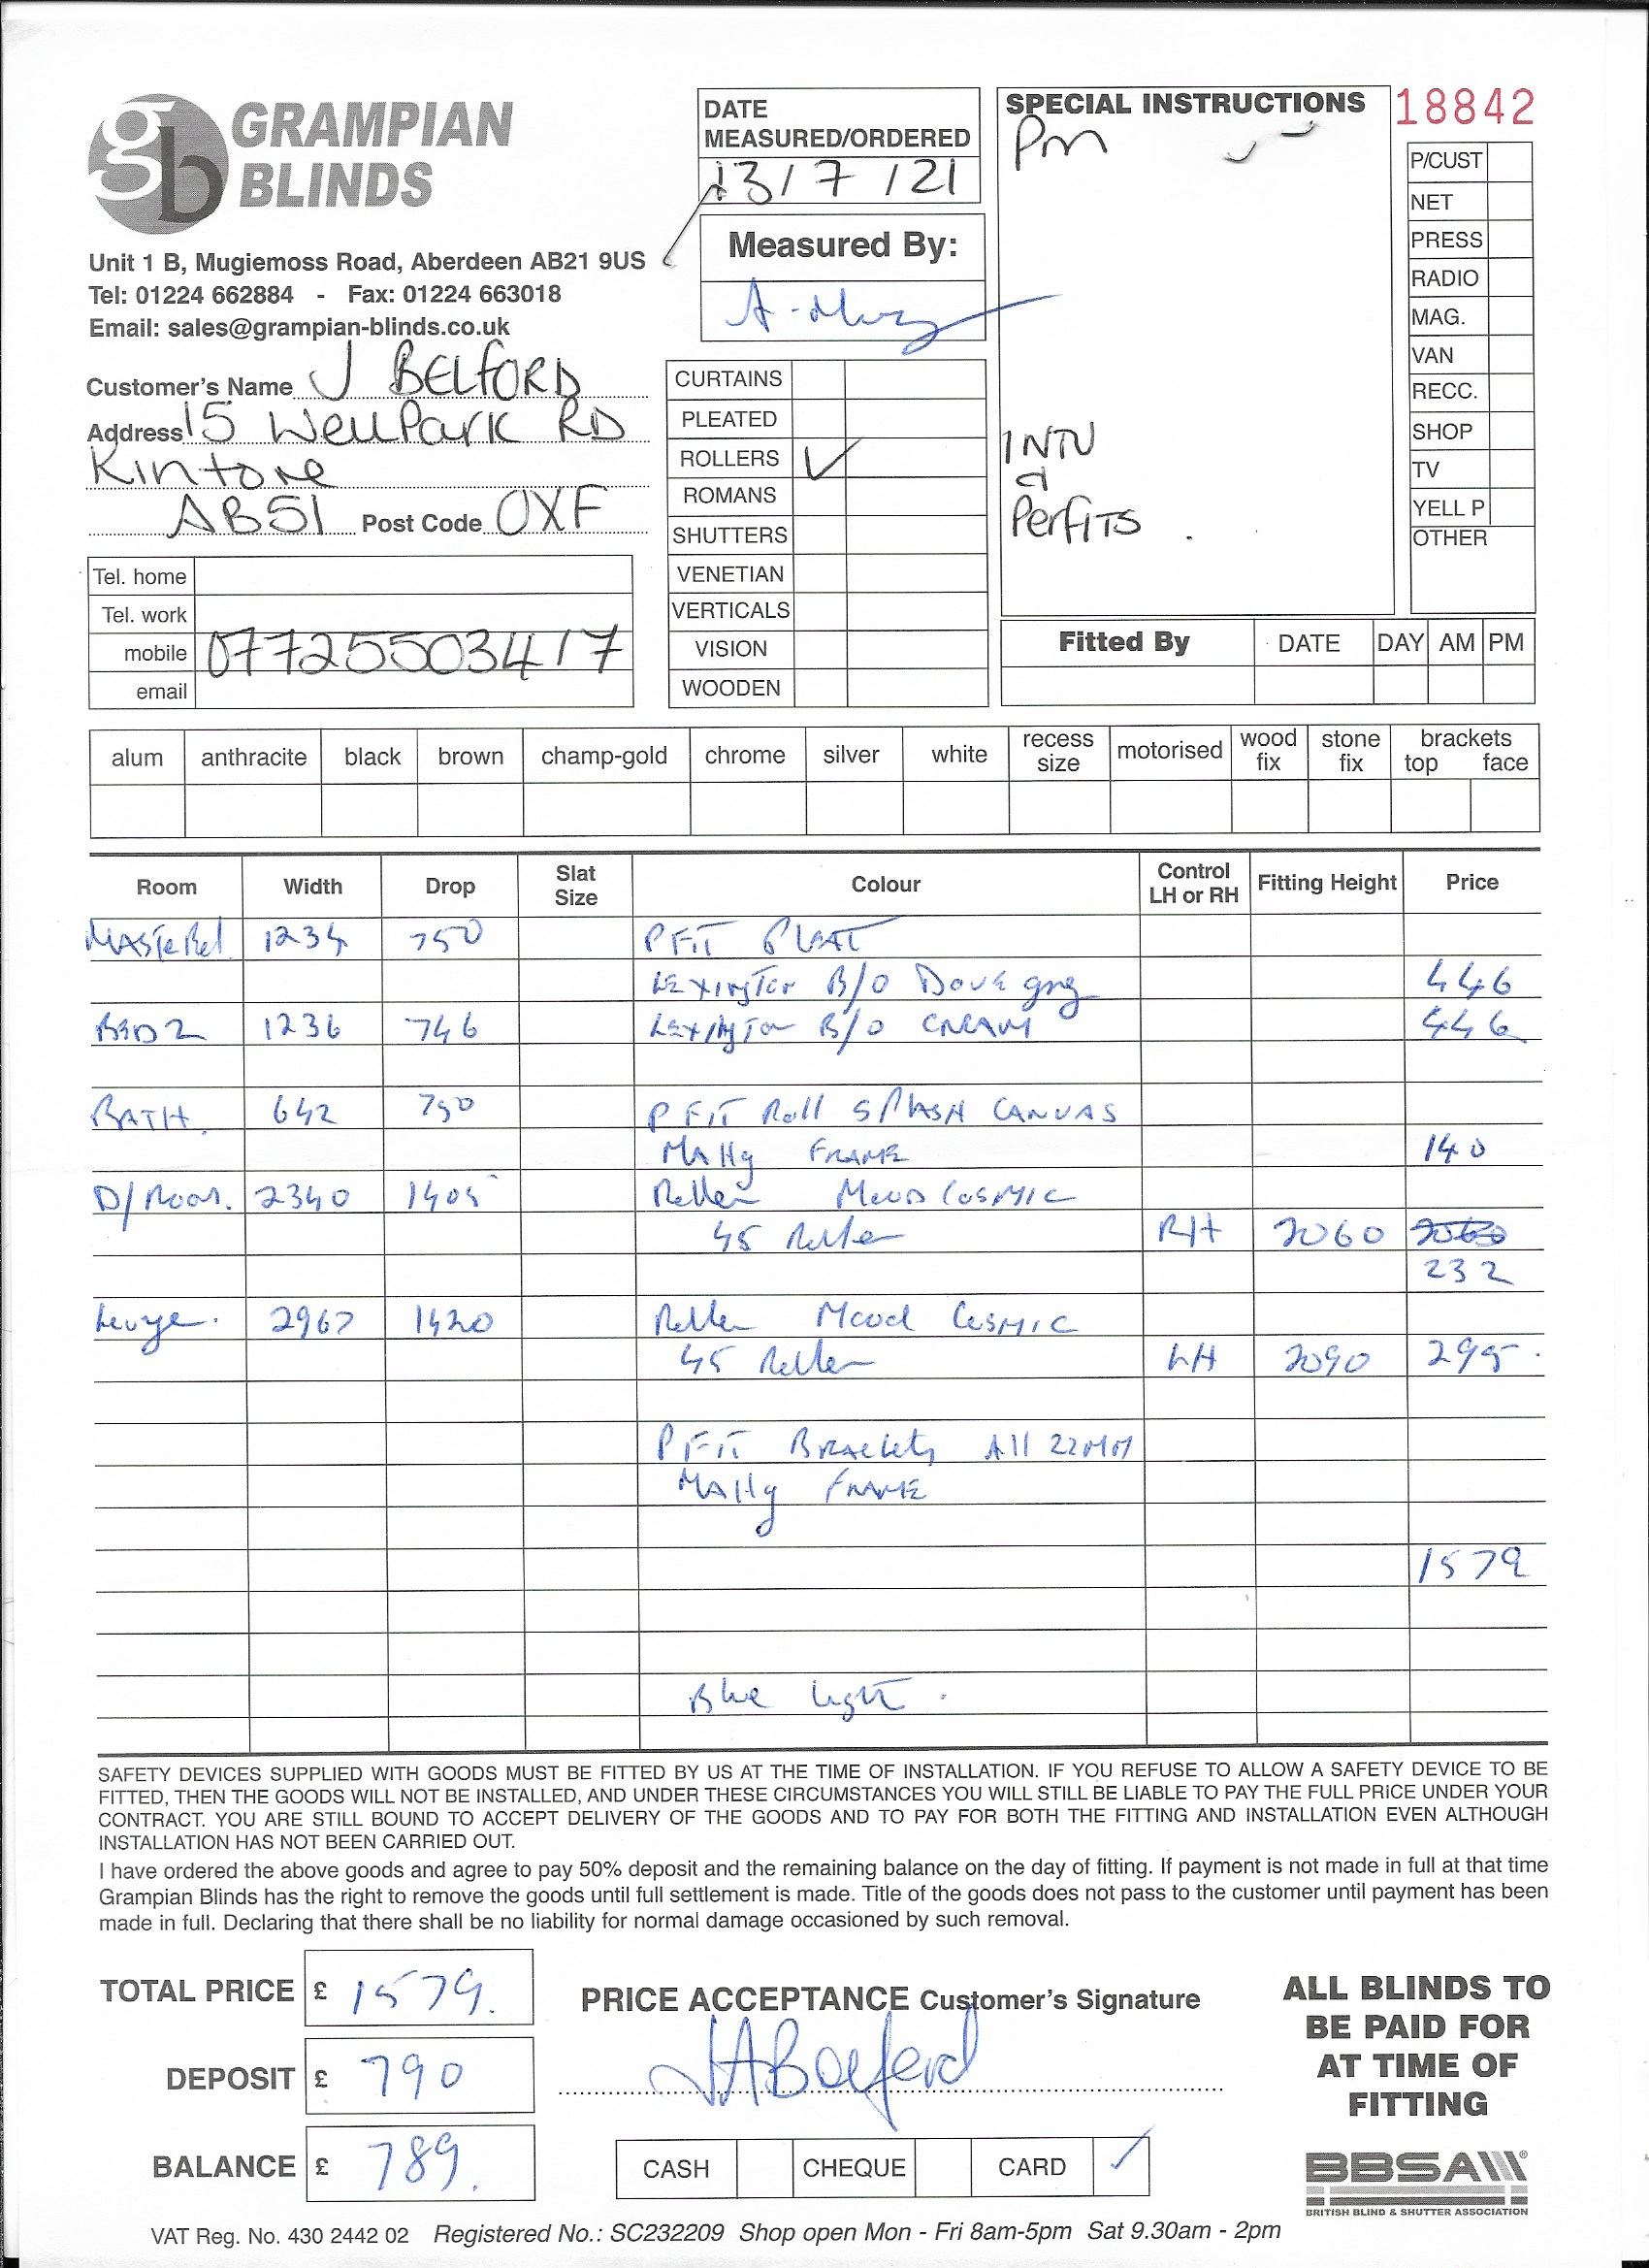 GRAMPIAN
BLINDS
Unit 1 B, Mugiemoss Road, Aberdeen AB21 9US
Tel: 01224 662884 - Fax: 01224 663018
Email: sales@grampian-blinds.co.uk
DATE
MEASURED/ORDERED
13/7/21
Measured By:
SPECIAL INSTRUCTIONS
Pm
INTU
Perfits
18842
P/CUST
NET
PRESS
RADIO
MAG.
VAN
RECC.
SHOP
TV
YELL P
OTHER
Customer's Name J BELFORD
Address 15 Wellpark RD
Kintore
AB51 Post Code 0XF
Tel. home
Tel. work
mobile 07725503417
email
CURTAINS
PLEATED
ROLLERS ✓
ROMANS
SHUTTERS
VENETIAN
VERTICALS
VISION
WOODEN
Fitted By DATE DAY AM PM
alum anthracite black brown champ-gold chrome silver white recess size motorised wood fix stone fix brackets top face
Room Width Drop Slat Size Colour Control LH or RH Fitting Height Price
MASTeRBed 1234 750 P FIT PLEAT
LEXINGTON B/O Dove grey 446
BED 2 1236 746 LEXINGTON B/O CREAM 446
BATH. 642 750 P FIT Roll SPLASH CANVAS
MAHg FRAME 140
D/Room. 2340 1405 Roller MOOD COSMIC
45 Roller RH 2060
232
Lounge. 2967 1420 Roller Mood COSMIC
45 Roller LH 2090 295.
P FIT Brackets All 22MM
MAHg FRAME
1579
Blue light.
SAFETY DEVICES SUPPLIED WITH GOODS MUST BE FITTED BY US AT THE TIME OF INSTALLATION. IF YOU REFUSE TO ALLOW A SAFETY DEVICE TO BE
FITTED, THEN THE GOODS WILL NOT BE INSTALLED, AND UNDER THESE CIRCUMSTANCES YOU WILL STILL BE LIABLE TO PAY THE FULL PRICE UNDER YOUR
CONTRACT. YOU ARE STILL BOUND TO ACCEPT DELIVERY OF THE GOODS AND TO PAY FOR BOTH THE FITTING AND INSTALLATION EVEN ALTHOUGH
INSTALLATION HAS NOT BEEN CARRIED OUT.
I have ordered the above goods and agree to pay 50% deposit and the remaining balance on the day of fitting. If payment is not made in full at that time
Grampian Blinds has the right to remove the goods until full settlement is made. Title of the goods does not pass to the customer until payment has been
made in full. Declaring that there shall be no liability for normal damage occasioned by such removal.
TOTAL PRICE £ 1579.
DEPOSIT £ 790
BALANCE £ 789.
PRICE ACCEPTANCE Customer's Signature
JABelford
CASH CHEQUE CARD ✓
ALL BLINDS TO
BE PAID FOR
AT TIME OF
FITTING
BBSA
BRITISH BLIND & SHUTTER ASSOCIATION
VAT Reg. No. 430 2442 02 Registered No.: SC232209 Shop open Mon - Fri 8am-5pm Sat 9.30am - 2pm